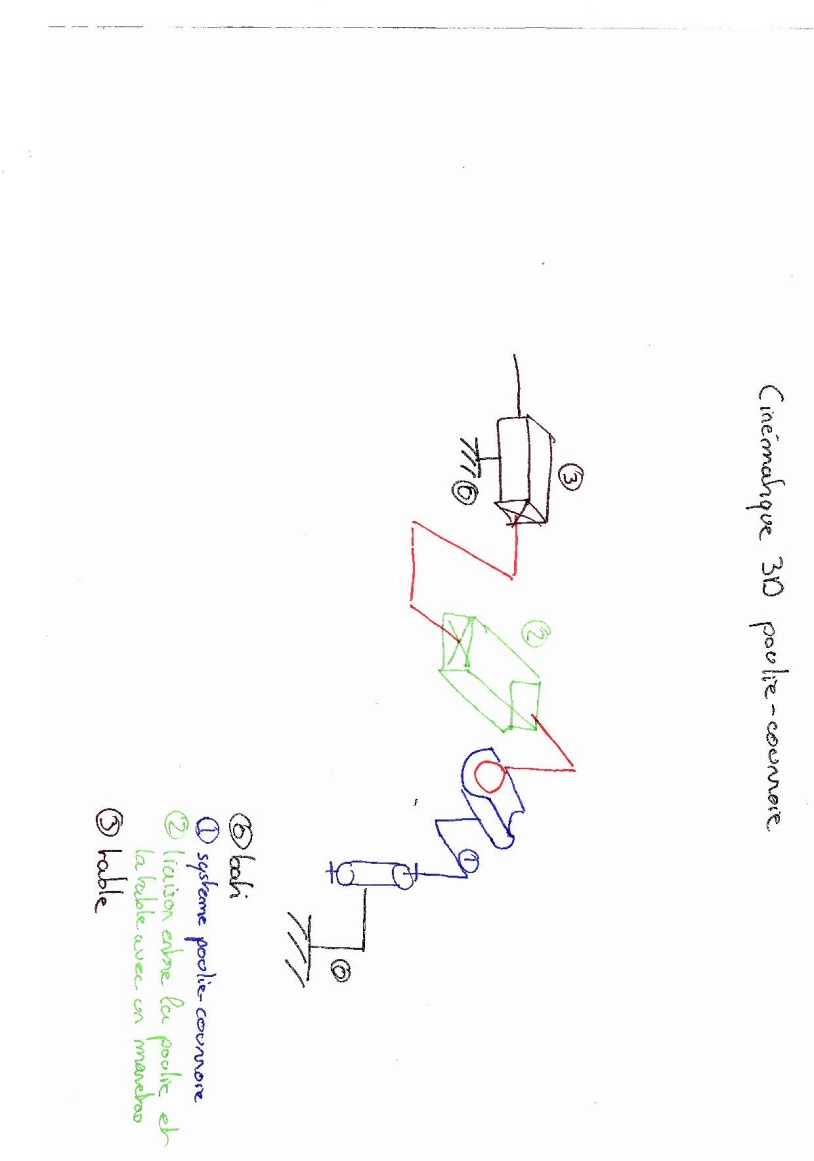 Cinématique 3D poulie-courroie
③
⓪
②
①
⓪
⓪ bati
① système poulie-courroie
② liaison entre la poulie et
la table avec un maneton
③ table